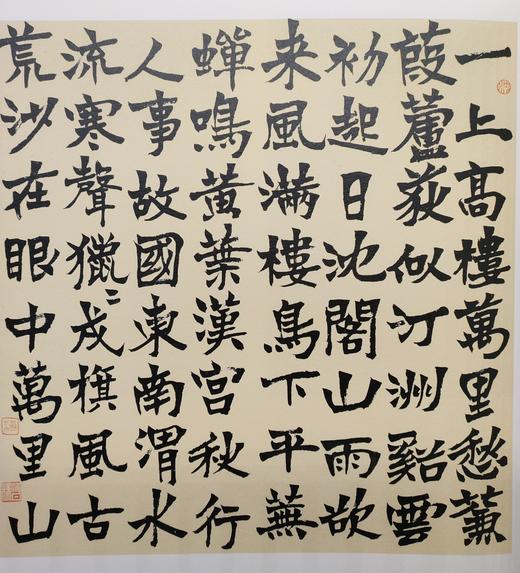 一上高樓萬里愁蒹
葭蘆荻似汀洲谿雲
初起日沈閣山雨欲
来風滿樓鳥下平蕪
蟬鳴黃葉漢宮秋行
人事故國東南渭水
流寒聲獵〻戍旗風古
荒沙在眼中萬里山